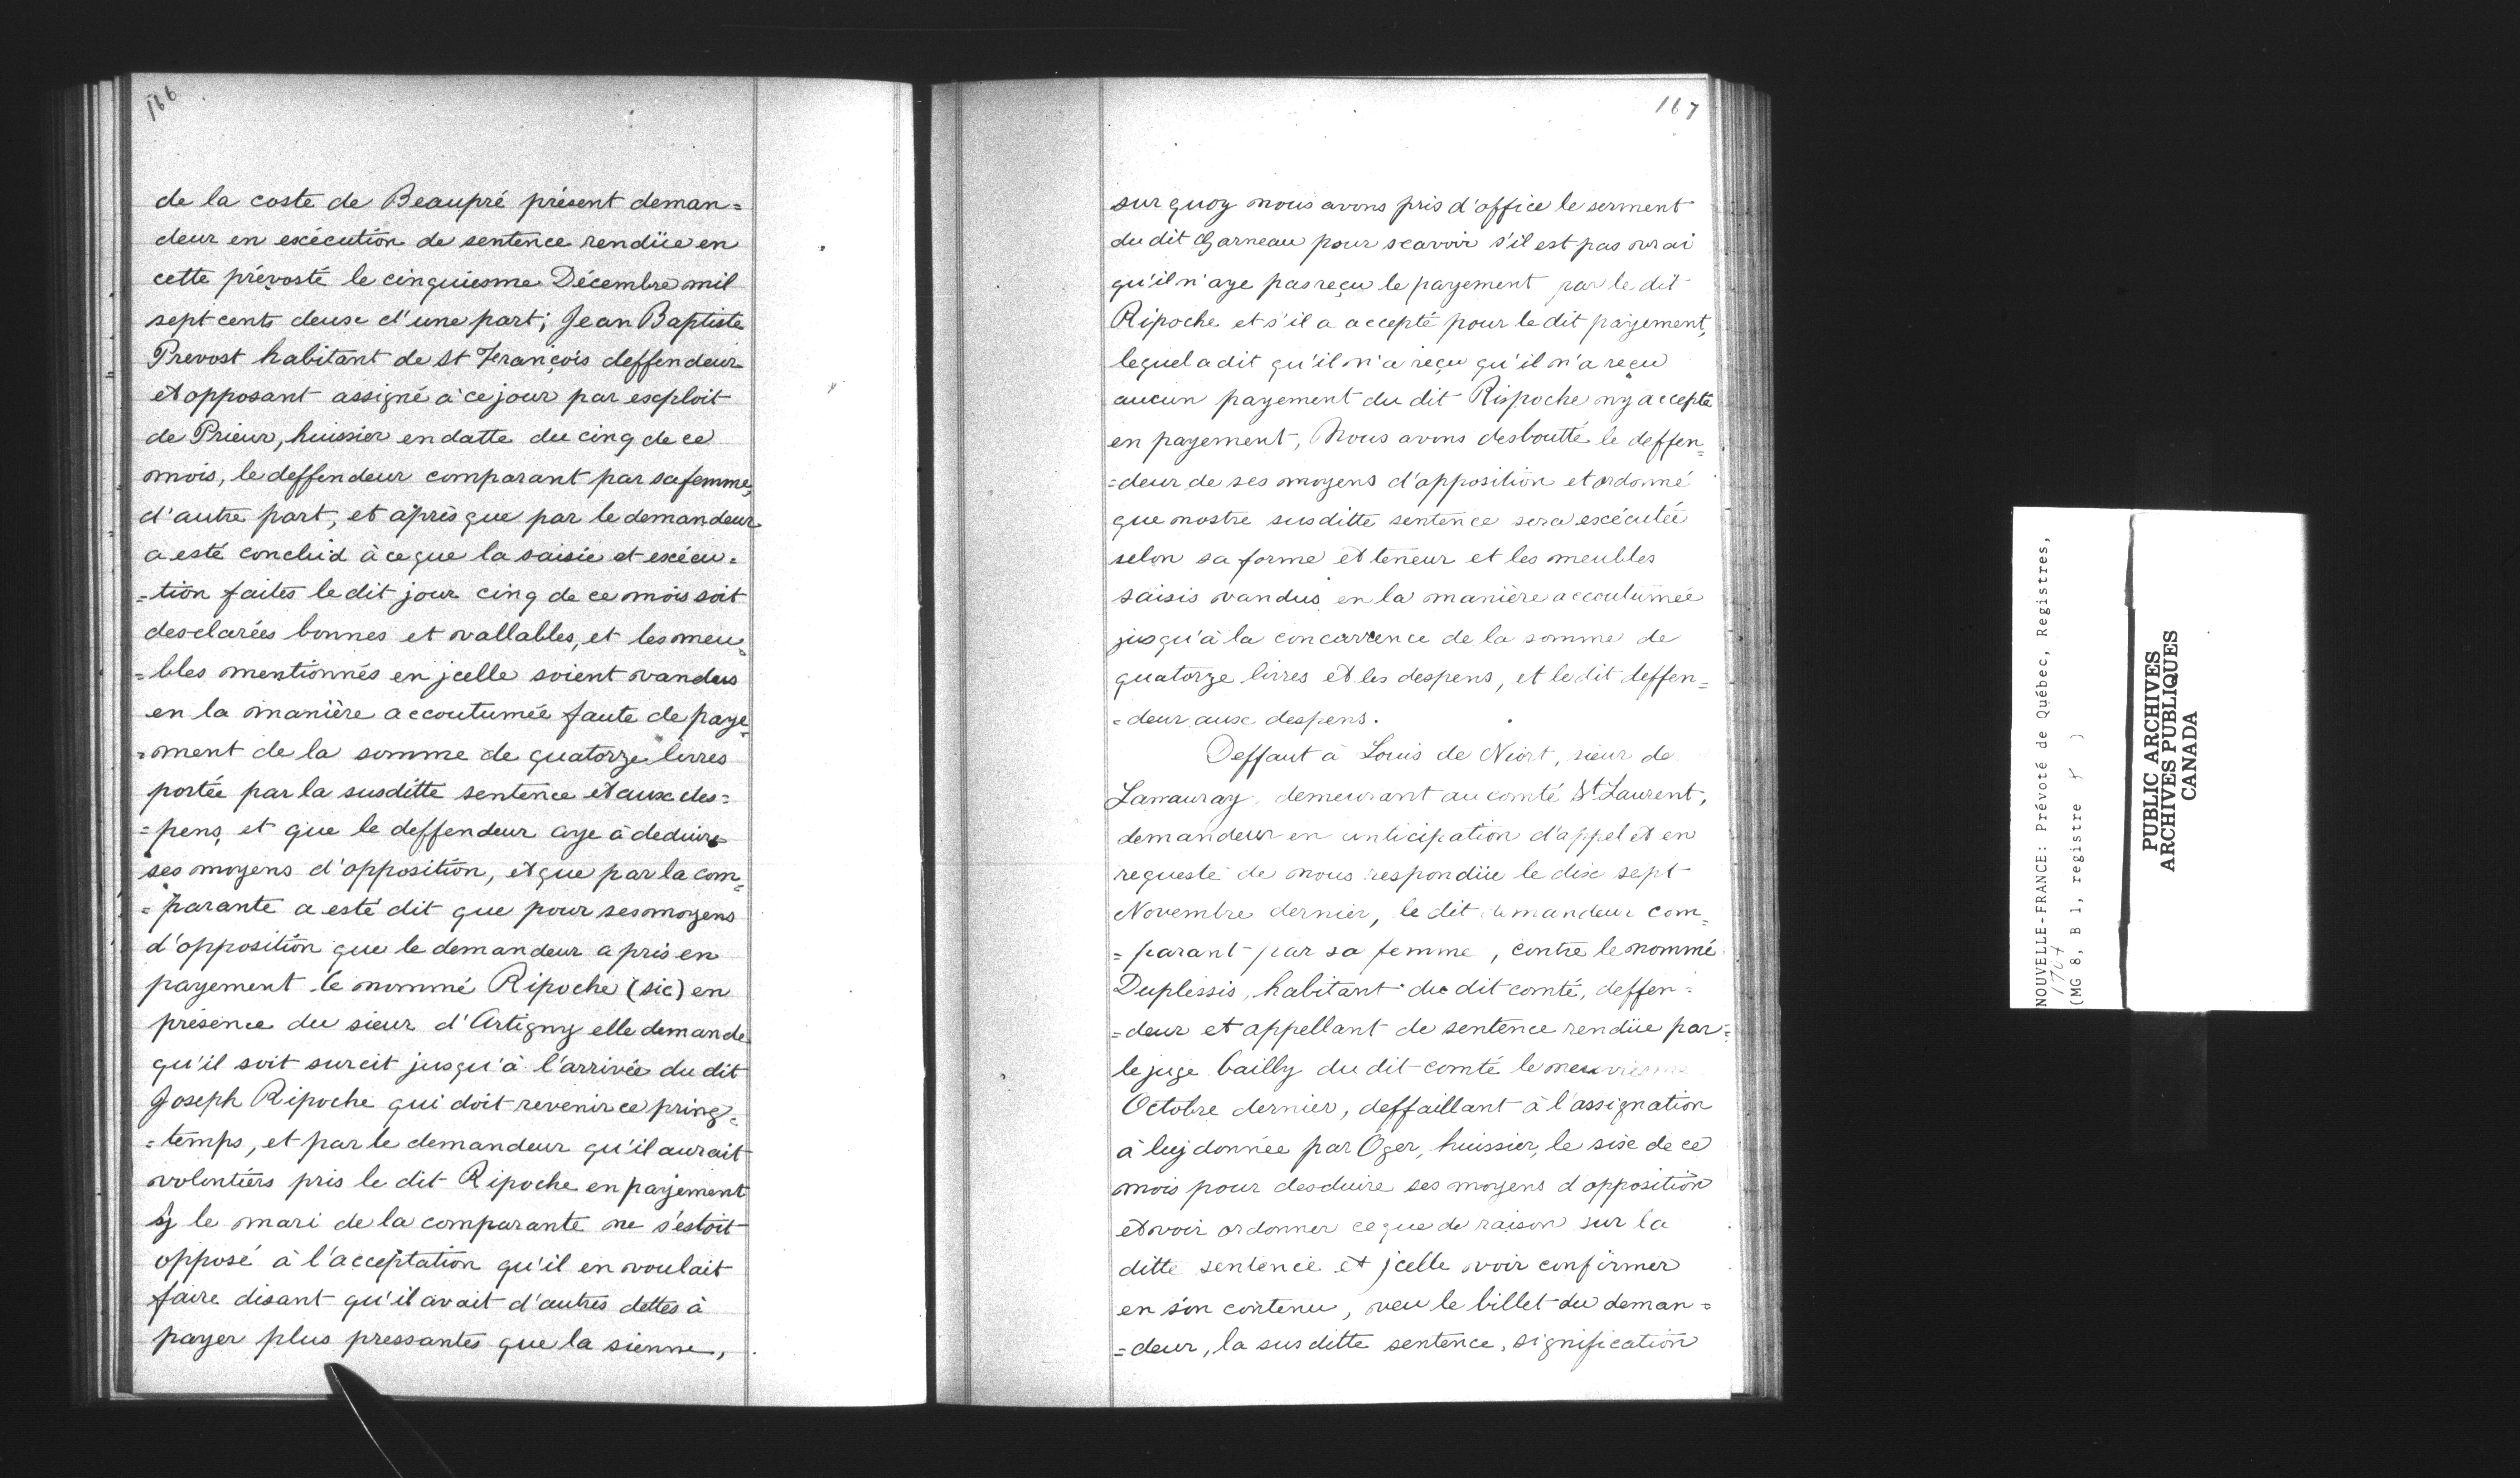 166
de la coste de Beaupré présent deman=
deur en exécution de sentence rendüe en
cette prévosté le cinquiesme Décembre mil
sept cents deux d'une part; Jean Baptiste
Prevost habitant de St François deffendeur
et opposant assigné à ce jour par exploit
de Prieur, huissier en datte du cinq de ce
mois, le deffendeur comparant par sa femme,
d'autre part, et après que par le demandeur
a esté conclud à ce que la saisie et exécu=
=tion faites le dit jour cinq de ce mois soit
desclarées bonnes et vallables, et les meu=
=bles mentionnés en jcelle soient vandus
en la manière accoutumée faute de paye=
=ment de la somme de quatorze livres
portée par la susditte sentence et aux des=
=pens, et que le deffendeur aye à deduire
ses moyens d'opposition, et que par la com=
=parante a esté dit que pour ses moyens
d'opposition que le demandeur a pris en
payement le nommé Ripoche (sic) en
présence du sieur d'Artigny elle demande
qu'il soit surcit jusqu'à l'arrivée du dit
Joseph Ripoche qui doit revenir ce pring=
=temps, et par le demandeur qu'il aurait
volontiérs pris le dit Ripoche en payement
sy le mari de la comparante ne s'estoit
opposé à l'acceptation qu'il en voulait
faire disant qu'il avait d'autres dettes à
payer plus pressantes que la sienne,
167
sur quoy nous avons pris d'office le serment
du dit Garneau pour scavoir s'il est pas vrai
qu'il n'aye pas reçu le payement par le dit
Ripoche et s'il a accepté pour le dit payement,
lequel a dit qu'il n'a reçu qu'il n'a reçu
aucun payement du dit Rispoche ny accepté
en payement, Nous avons desboutté le deffen=
=deur de ses moyens d'opposition et ordonné
que nostre susditte sentence sera exécutée
selon sa forme et teneur et les meubles
saisis vandus en la manière accoutumée
jusqu'à la concurrence de la somme de
quatorze livres et les despens, et le dit deffen=
=deur aux despens.
Deffaut à Louis de Niort, sieur de
Lanauray demeurant au comté St Laurent,
demandeur en anticipation d'appel et en
requeste de nous respondüe le dix sept
Novembre dernier, le dit demandeur com=
=parant par sa femme, contre le nommé
Duplessis, habitant du dit comté, deffen=
=deur et appellant de sentence rendüe par
le juge bailly du dit comté le neuvriesme
Octobre dernier, deffaillant à l'assignation
à luy donnée par Oger, huissier, le six de ce
mois pour desduire ses moyens d'opposition
et voir ordonner ce que de raison sur la
ditte sentence et jcelle voir confirmer
en son contenu, veu le billet du deman=
=deur, la susditte sentence, signification
NOUVELLE-FRANCE: Prévoté de Québec, Registres,
1704
(MG 8, B 1, registre )
PUBLIC ARCHIVES
ARCHIVES PUBLIQUES
CANADA